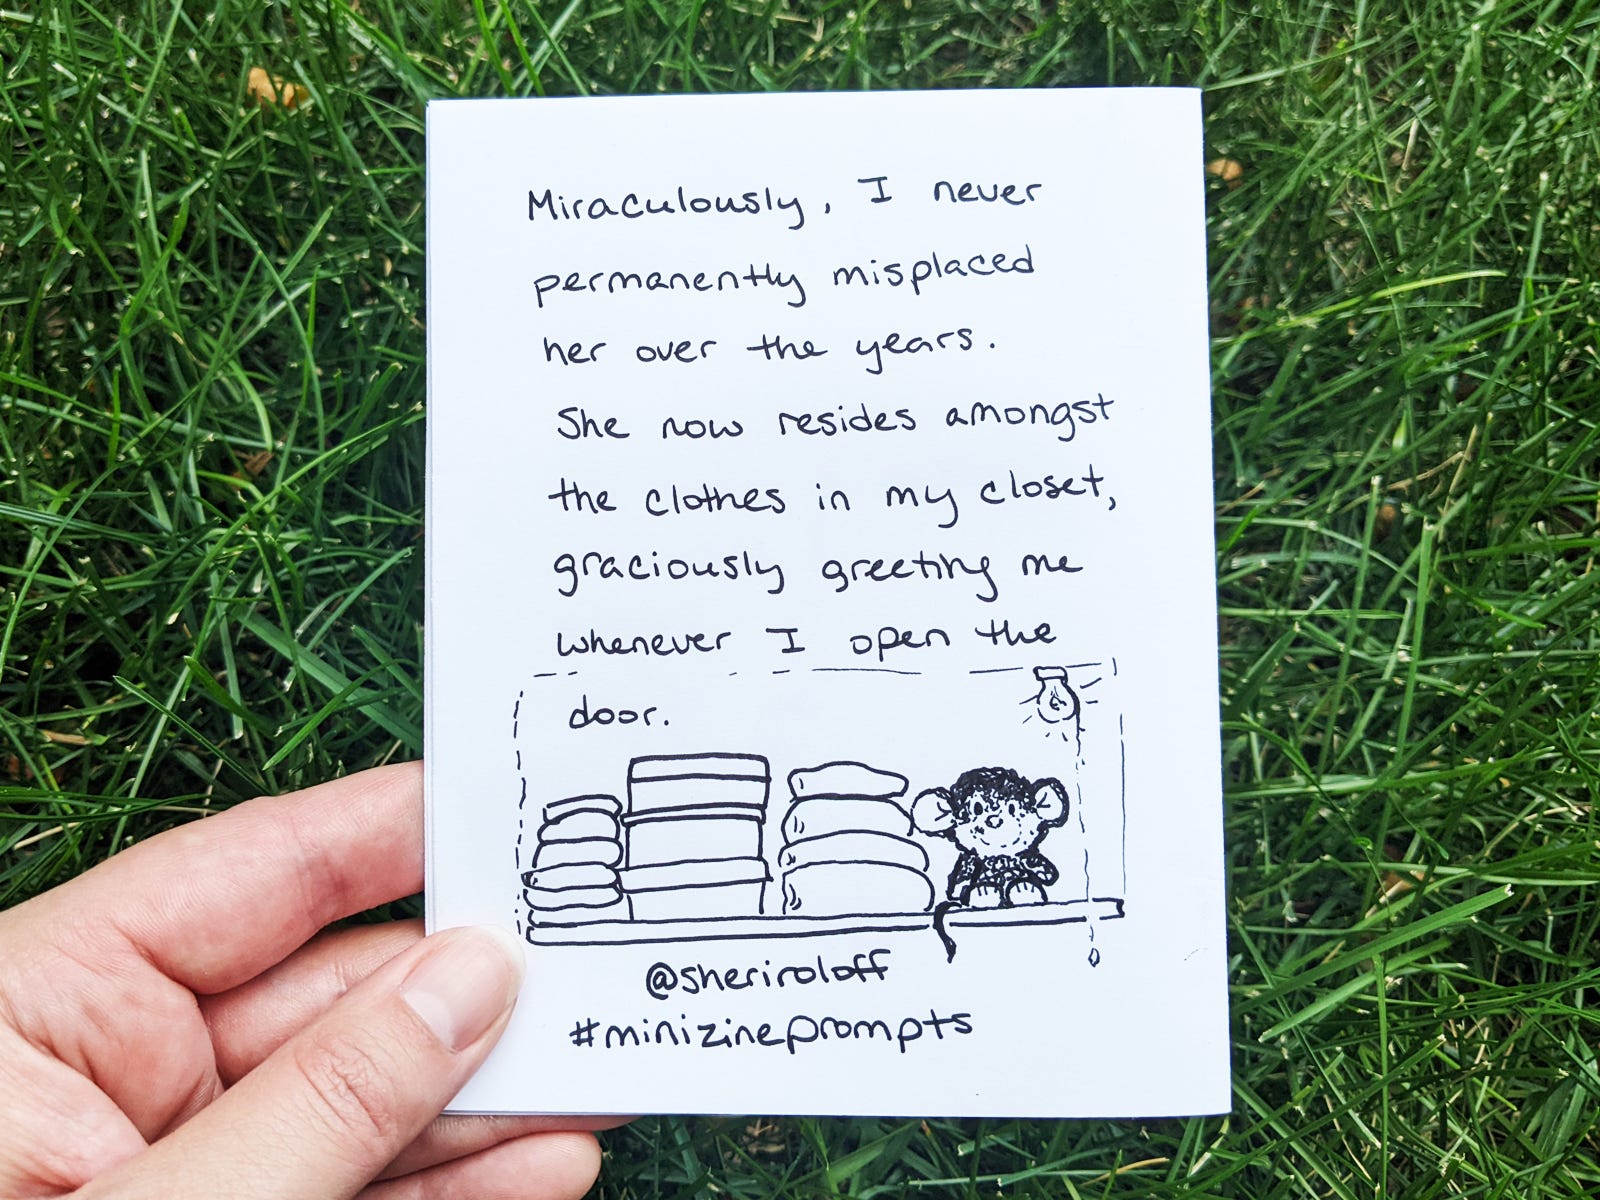 Miraculously, I never
permanently misplaced
her over the years.
She now resides amongst
the clothes in my closet,
graciously greeting me
whenever I open the
door.
@sheriroloff
#minizineprompts